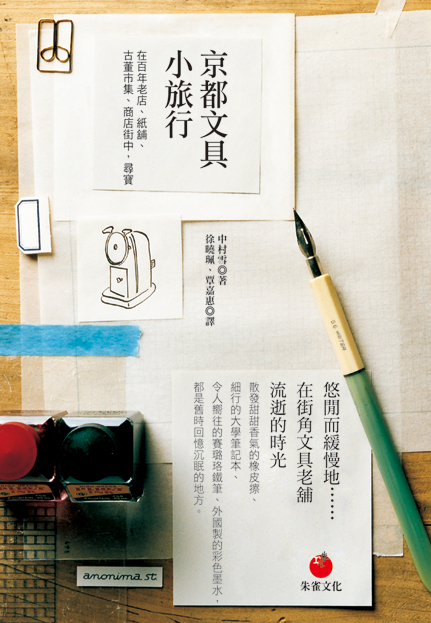 京都文具
小旅行
在百年老店、紙舖、
古董市集、商店街中，尋寶
中村雪◎著
徐曉珮、覃嘉惠◎譯
悠閒而緩慢地……
在街角文具老舖
流逝的時光
散發甜甜香氣的橡皮擦、
細行的大學筆記本、
令人嚮往的賽璐珞鐵筆、外國製的彩色墨水，
都是舊時回憶沉眠的地方。
朱雀文化
anonima st.